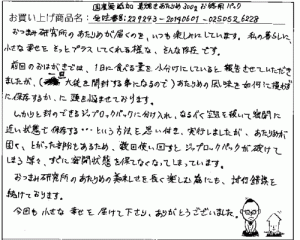 国産無添加 素焼きあたりめ 300g お徳用パック
お買い上げ商品名: 受注番号:229243-20190601-025052 6228
おつまみ研究所のあたりめが届くのを、いつも楽しみにしています。私の暮らしに
小さな幸せをそっとプラスしてくれる様な、そんな存在です。
前回のおはがきでは、1日に食べる量を小分けにしていると報告させていただき
ましたが、一旦大袋を開封する事になるのであたりめの風味を如何に損わず
に保存するか、に頭を悩ませております。
しかりと封のできるジップロックパックに分け入れ、なるべく空気を抜いて密閉に
近い状態で保存する…という方法を思い付き、実行しましたが、あたりめが
固く、とがった部分もあるため、数回使い回すとジップロックパックが破けて
しまう等々、すぐに密閉状態を保てなくなってしまっています。
おつまみ研究所のあたりめの美味しさを長く楽しむ為にも、試行錯誤を
続けております。
今回も小さな幸せを届けて下さり、ありがとうございました。